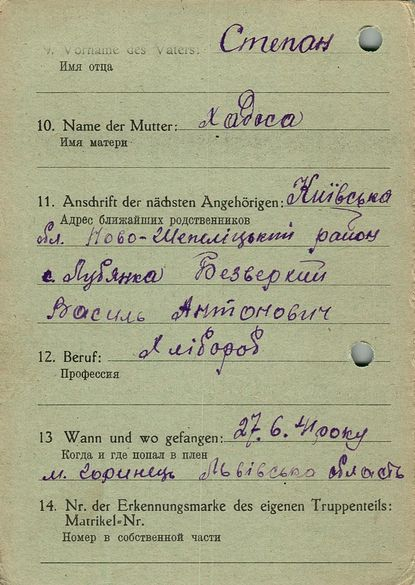 9. Vorname des Vaters: Степан
Имя отца
10. Name der Mutter: Хадоса
Имя матери
11. Anschrift der nächsten Angehörigen: Київська
Адрес ближайших родственников
обл. Ново-Шепеліцький район
с. Лубянка Безверхий
Василь Антонович
12. Beruf: Хлібороб
Профессия
13 Wann und wo gefangen: 27.6.41 року
Когда и где попал в плен
м. Львівська область
14. Nr. der Erkennungsmarke des eigenen Truppenteils:
Matrikel-Nr.
Номер в собственной части